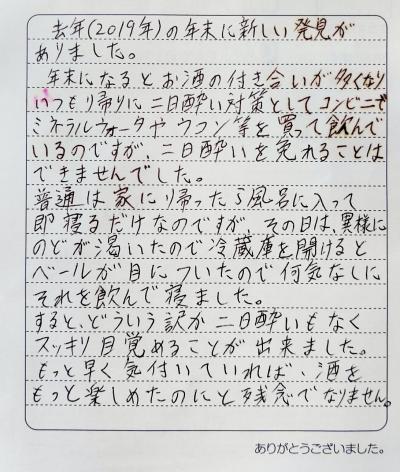 去年(2019年)の年末に新しい発見が
ありました。
年末になるとお酒の付き合いが多くなり
いつも帰りに二日酔い対策としてコンビニで
ミネラルウォータやウコン等を買って飲んで
いるのですが、二日酔いを免れることは
できませんでした。
普通は家に帰ったら風呂に入って
即寝るだけなのですが、その日は、異様に
のどが渇いたので冷蔵庫を開けると
ベールが目についたので何気なしに
それを飲んで寝ました。
すると、どういう訳か二日酔いもなく
スッキリ目覚めることが出来ました。
もっと早く気付いていれば、酒を
もっと楽しめたのにと残念でなりません。
ありがとうございました。